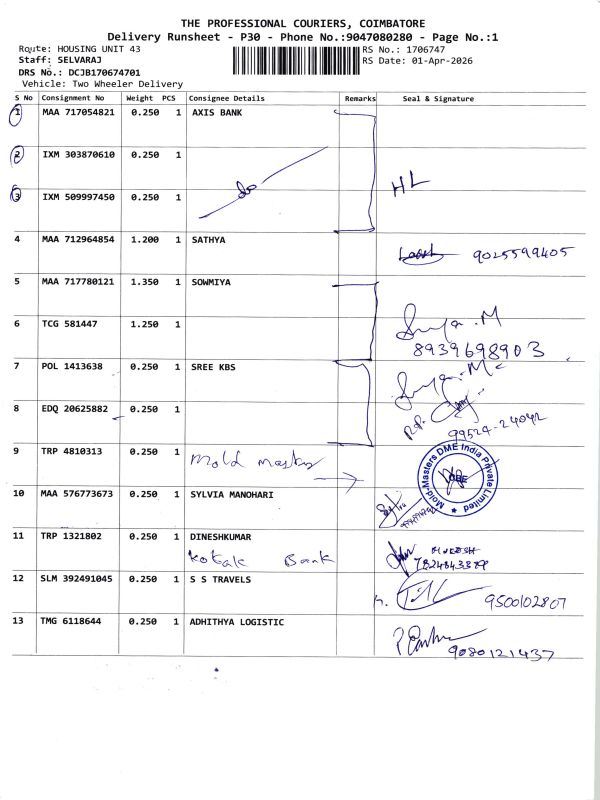 THE PROFESSIONAL COURIERS, COIMBATORE
Delivery Runsheet - P30 - Phone No.:9047080280 - Page No.:1
Route: HOUSING UNIT 43 RS No.: 1706747
Staff: SELVARAJ RS Date: 01-Apr-2026
DRS No.: DCJB170674701
Vehicle: Two Wheeler Delivery
S No Consignment No Weight PCS Consignee Details Remarks Seal & Signature
1 MAA 717054821 0.250 1 AXIS BANK
2 IXM 303870610 0.250 1
do HL
3 IXM 509997450 0.250 1
4 MAA 712964854 1.200 1 SATHYA
9025599405
5 MAA 717780121 1.350 1 SOWMIYA
6 TCG 581447 1.250 1 Surya.M
8939698903
7 POL 1413638 0.250 1 SREE KBS
Surya.M
8 EDQ 20625882 0.250 1
99524-24042
9 TRP 4810313 0.250 1 Mold Masters
Mold-Masters DME India Private Limited
10 MAA 576773673 0.250 1 SYLVIA MANOHARI
11 TRP 1321802 0.250 1 DINESHKUMAR
Kotak Bank
12 SLM 392491045 0.250 1 S S TRAVELS
9500102807
13 TMG 6118644 0.250 1 ADHITHYA LOGISTIC
9080121437